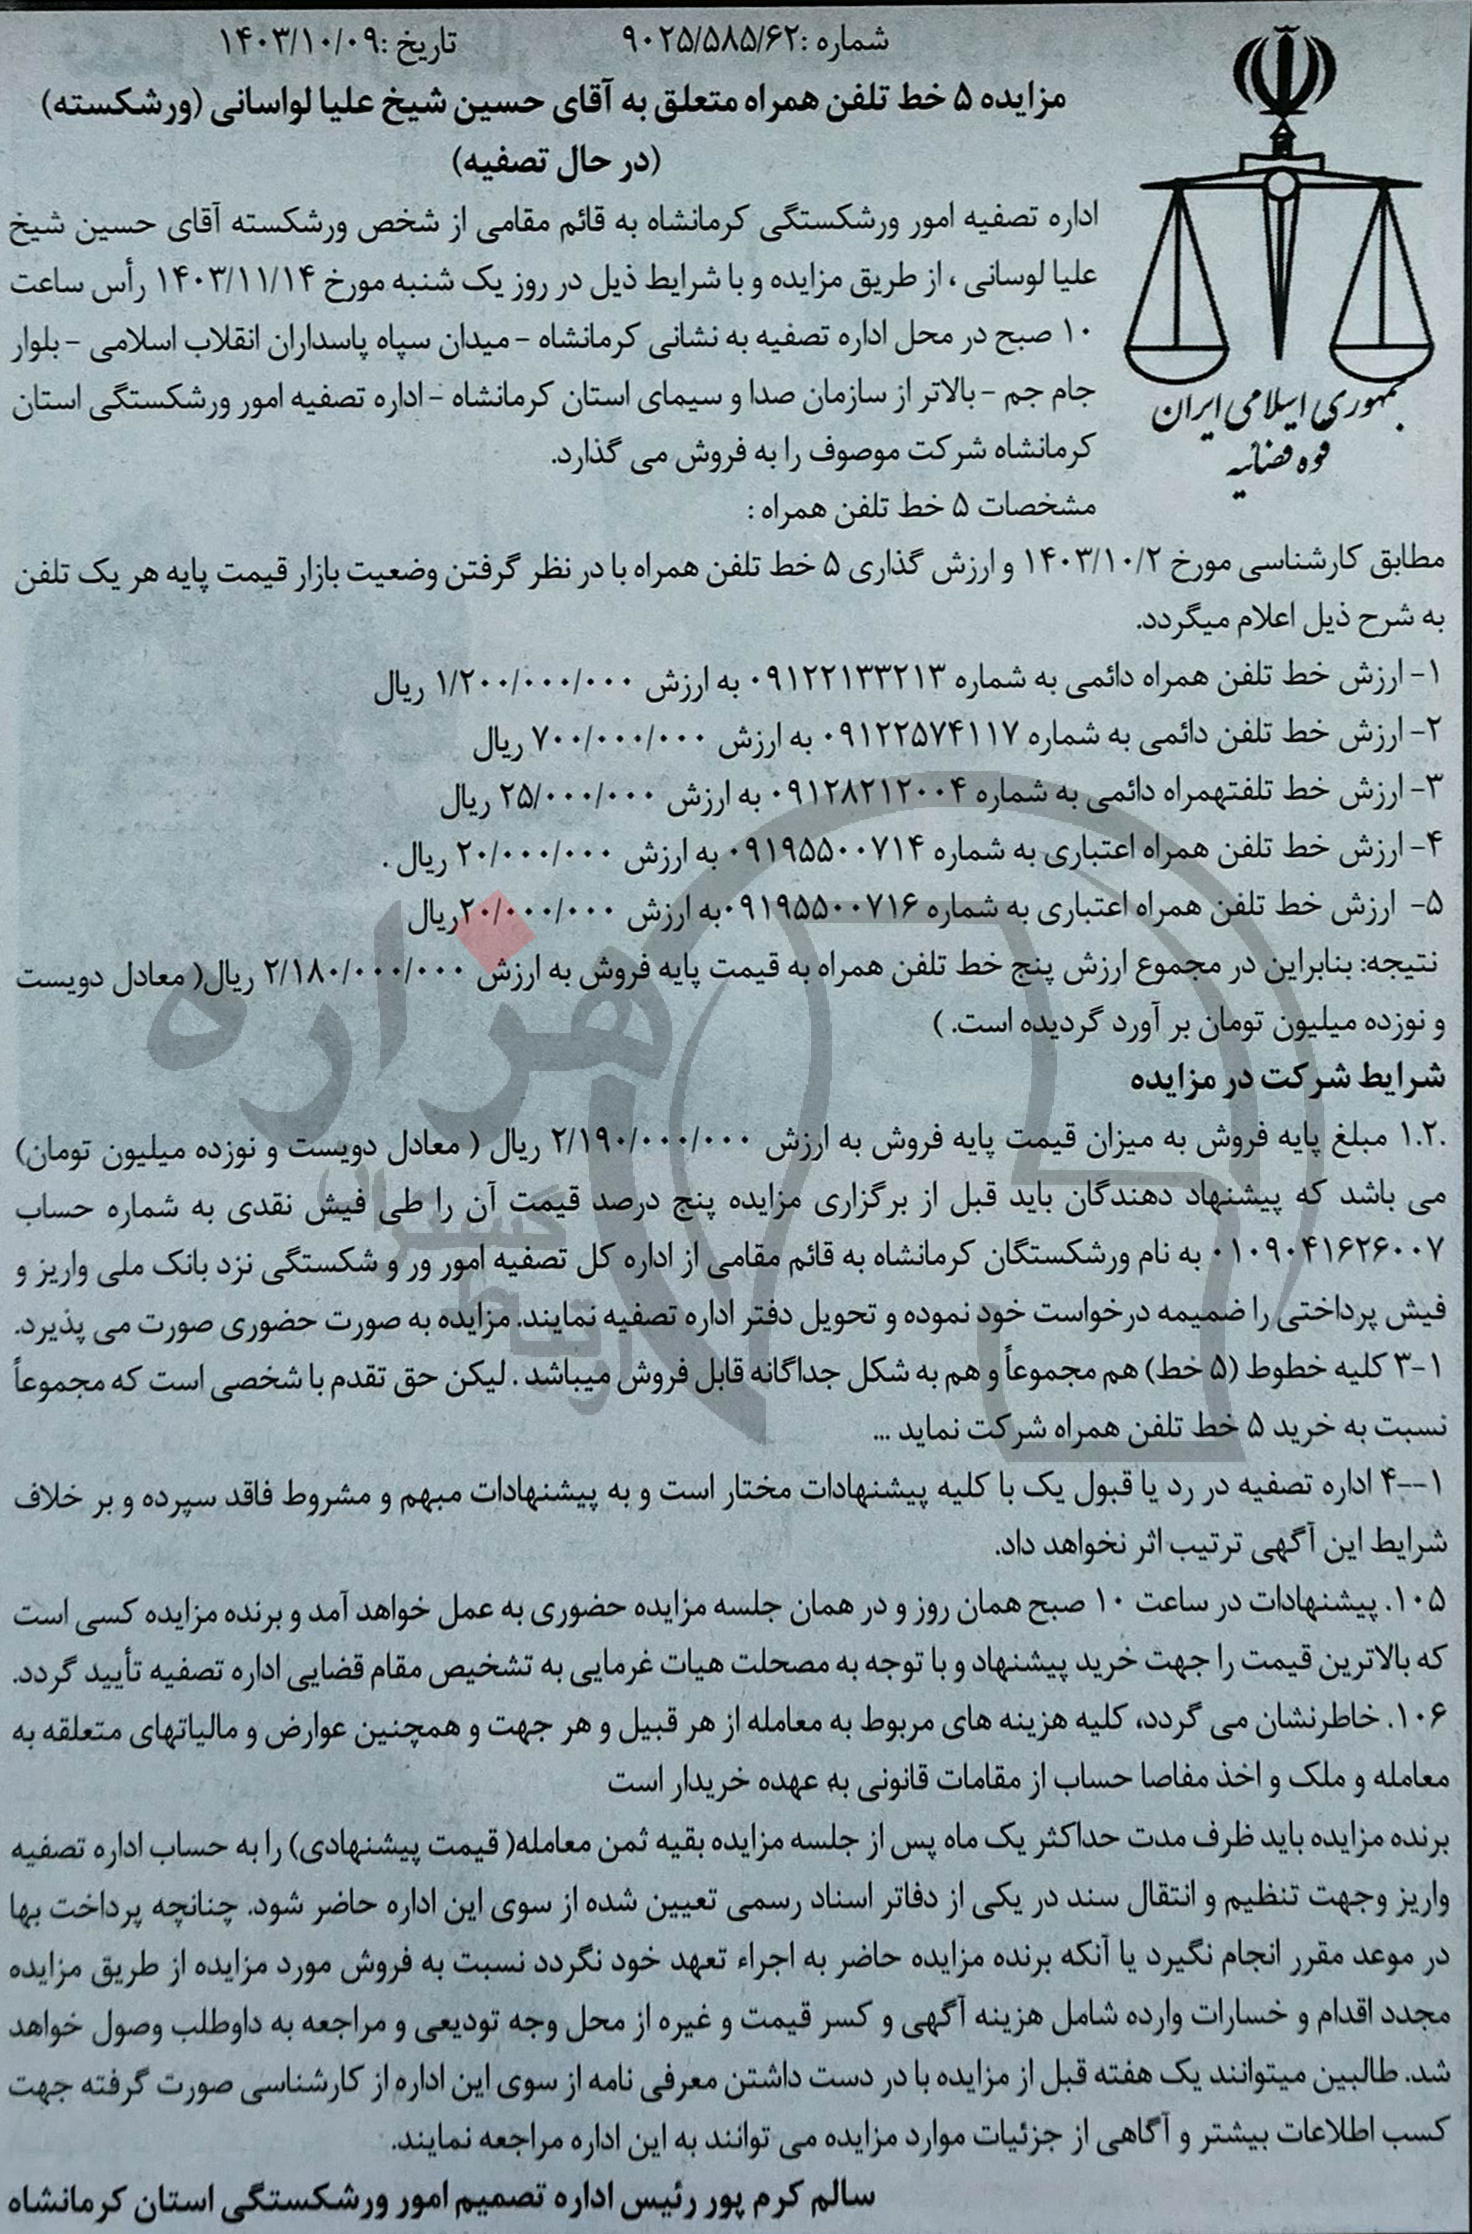 شماره :۹۰۲۵/۵۸۵/۶۲
تاریخ :۱۴۰۳/۱۰/۰۹
مزایده ۵ خط تلفن همراه متعلق به آقای حسین شیخ علیا لواسانی (ورشکسته)
(در حال تصفیه)
جمهوری اسلامی ایران
قوه قضائیه
اداره تصفیه امور ورشکستگی کرمانشاه به قائم مقامی از شخص ورشکسته آقای حسین شیخ
علیا لوسانی ، از طریق مزایده و با شرایط ذیل در روز یک شنبه مورخ ۱۴۰۳/۱۱/۱۴ رأس ساعت
۱۰ صبح در محل اداره تصفیه به نشانی کرمانشاه - میدان سپاه پاسداران انقلاب اسلامی - بلوار
جام جم - بالاتر از سازمان صدا و سیمای استان کرمانشاه - اداره تصفیه امور ورشکستگی استان
کرمانشاه شرکت موصوف را به فروش می گذارد.
مشخصات ۵ خط تلفن همراه :
مطابق کارشناسی مورخ ۱۴۰۳/۱۰/۲ و ارزش گذاری ۵ خط تلفن همراه با در نظر گرفتن وضعیت بازار قیمت پایه هر یک تلفن
به شرح ذیل اعلام میگردد.
۱- ارزش خط تلفن همراه دائمی به شماره ۰۹۱۲۲۱۳۳۲۱۳ به ارزش ۱/۲۰۰/۰۰۰/۰۰۰ ریال
۲- ارزش خط تلفن دائمی به شماره ۰۹۱۲۲۵۷۴۱۱۷ به ارزش ۷۰۰/۰۰۰/۰۰۰ ریال
۳- ارزش خط تلفتهمراه دائمی به شماره ۰۹۱۲۸۲۱۲۰۰۴ به ارزش ۲۵/۰۰۰/۰۰۰ ریال
۴- ارزش خط تلفن همراه اعتباری به شماره ۰۹۱۹۵۵۰۰۷۱۴ به ارزش ۲۰/۰۰۰/۰۰۰ ریال .
۵- ارزش خط تلفن همراه اعتباری به شماره ۰۹۱۹۵۵۰۰۷۱۶به ارزش ۲۰/۰۰۰/۰۰۰ریال
نتیجه: بنابراین در مجموع ارزش پنج خط تلفن همراه به قیمت پایه فروش به ارزش ۲/۱۸۰/۰۰۰/۰۰۰ ریال( معادل دویست
و نوزده میلیون تومان بر آورد گردیده است. )
شرایط شرکت در مزایده
.۱.۲ مبلغ پایه فروش به میزان قیمت پایه فروش به ارزش ۲/۱۹۰/۰۰۰/۰۰۰ ریال ( معادل دویست و نوزده میلیون تومان)
می باشد که پیشنهاد دهندگان باید قبل از برگزاری مزایده پنج درصد قیمت آن را طی فیش نقدی به شماره حساب
۰۱۰۹۰۴۱۶۲۶۰۰۷ به نام ورشکستگان کرمانشاه به قائم مقامی از اداره کل تصفیه امور ور و شکستگی نزد بانک ملی واریز و
فیش پرداختی را ضمیمه درخواست خود نموده و تحویل دفتر اداره تصفیه نمایند. مزایده به صورت حضوری صورت می پذیرد.
۳-۱ کلیه خطوط (۵ خط) هم مجموعاً و هم به شکل جداگانه قابل فروش میباشد . لیکن حق تقدم با شخصی است که مجموعاً
نسبت به خرید ۵ خط تلفن همراه شرکت نماید ...
۴--۱ اداره تصفیه در رد یا قبول یک با کلیه پیشنهادات مختار است و به پیشنهادات مبهم و مشروط فاقد سپرده و بر خلاف
شرایط این آگهی ترتیب اثر نخواهد داد.
۱۰۵. پیشنهادات در ساعت ۱۰ صبح همان روز و در همان جلسه مزایده حضوری به عمل خواهد آمد و برنده مزایده کسی است
که بالاترین قیمت را جهت خرید پیشنهاد و با توجه به مصحلت هیات غرمایی به تشخیص مقام قضایی اداره تصفیه تأیید گردد.
۱۰۶. خاطرنشان می گردد، کلیه هزینه های مربوط به معامله از هر قبیل و هر جهت و همچنین عوارض و مالیاتهای متعلقه به
معامله و ملک و اخذ مفاصا حساب از مقامات قانونی به عهده خریدار است
برنده مزایده باید ظرف مدت حداکثر یک ماه پس از جلسه مزایده بقیه ثمن معامله( قیمت پیشنهادی) را به حساب اداره تصفیه
واریز وجهت تنظیم و انتقال سند در یکی از دفاتر اسناد رسمی تعیین شده از سوی این اداره حاضر شود. چنانچه پرداخت بها
در موعد مقرر انجام نگیرد یا آنکه برنده مزایده حاضر به اجراء تعهد خود نگردد نسبت به فروش مورد مزایده از طریق مزایده
مجدد اقدام و خسارات وارده شامل هزینه آگهی و کسر قیمت و غیره از محل وجه تودیعی و مراجعه به داوطلب وصول خواهد
شد. طالبین میتوانند یک هفته قبل از مزایده با در دست داشتن معرفی نامه از سوی این اداره از کارشناسی صورت گرفته جهت
کسب اطلاعات بیشتر و آگاهی از جزئیات موارد مزایده می توانند به این اداره مراجعه نمایند.
سالم کرم پور رئیس اداره تصمیم امور ورشکستگی استان کرمانشاه
هزاره